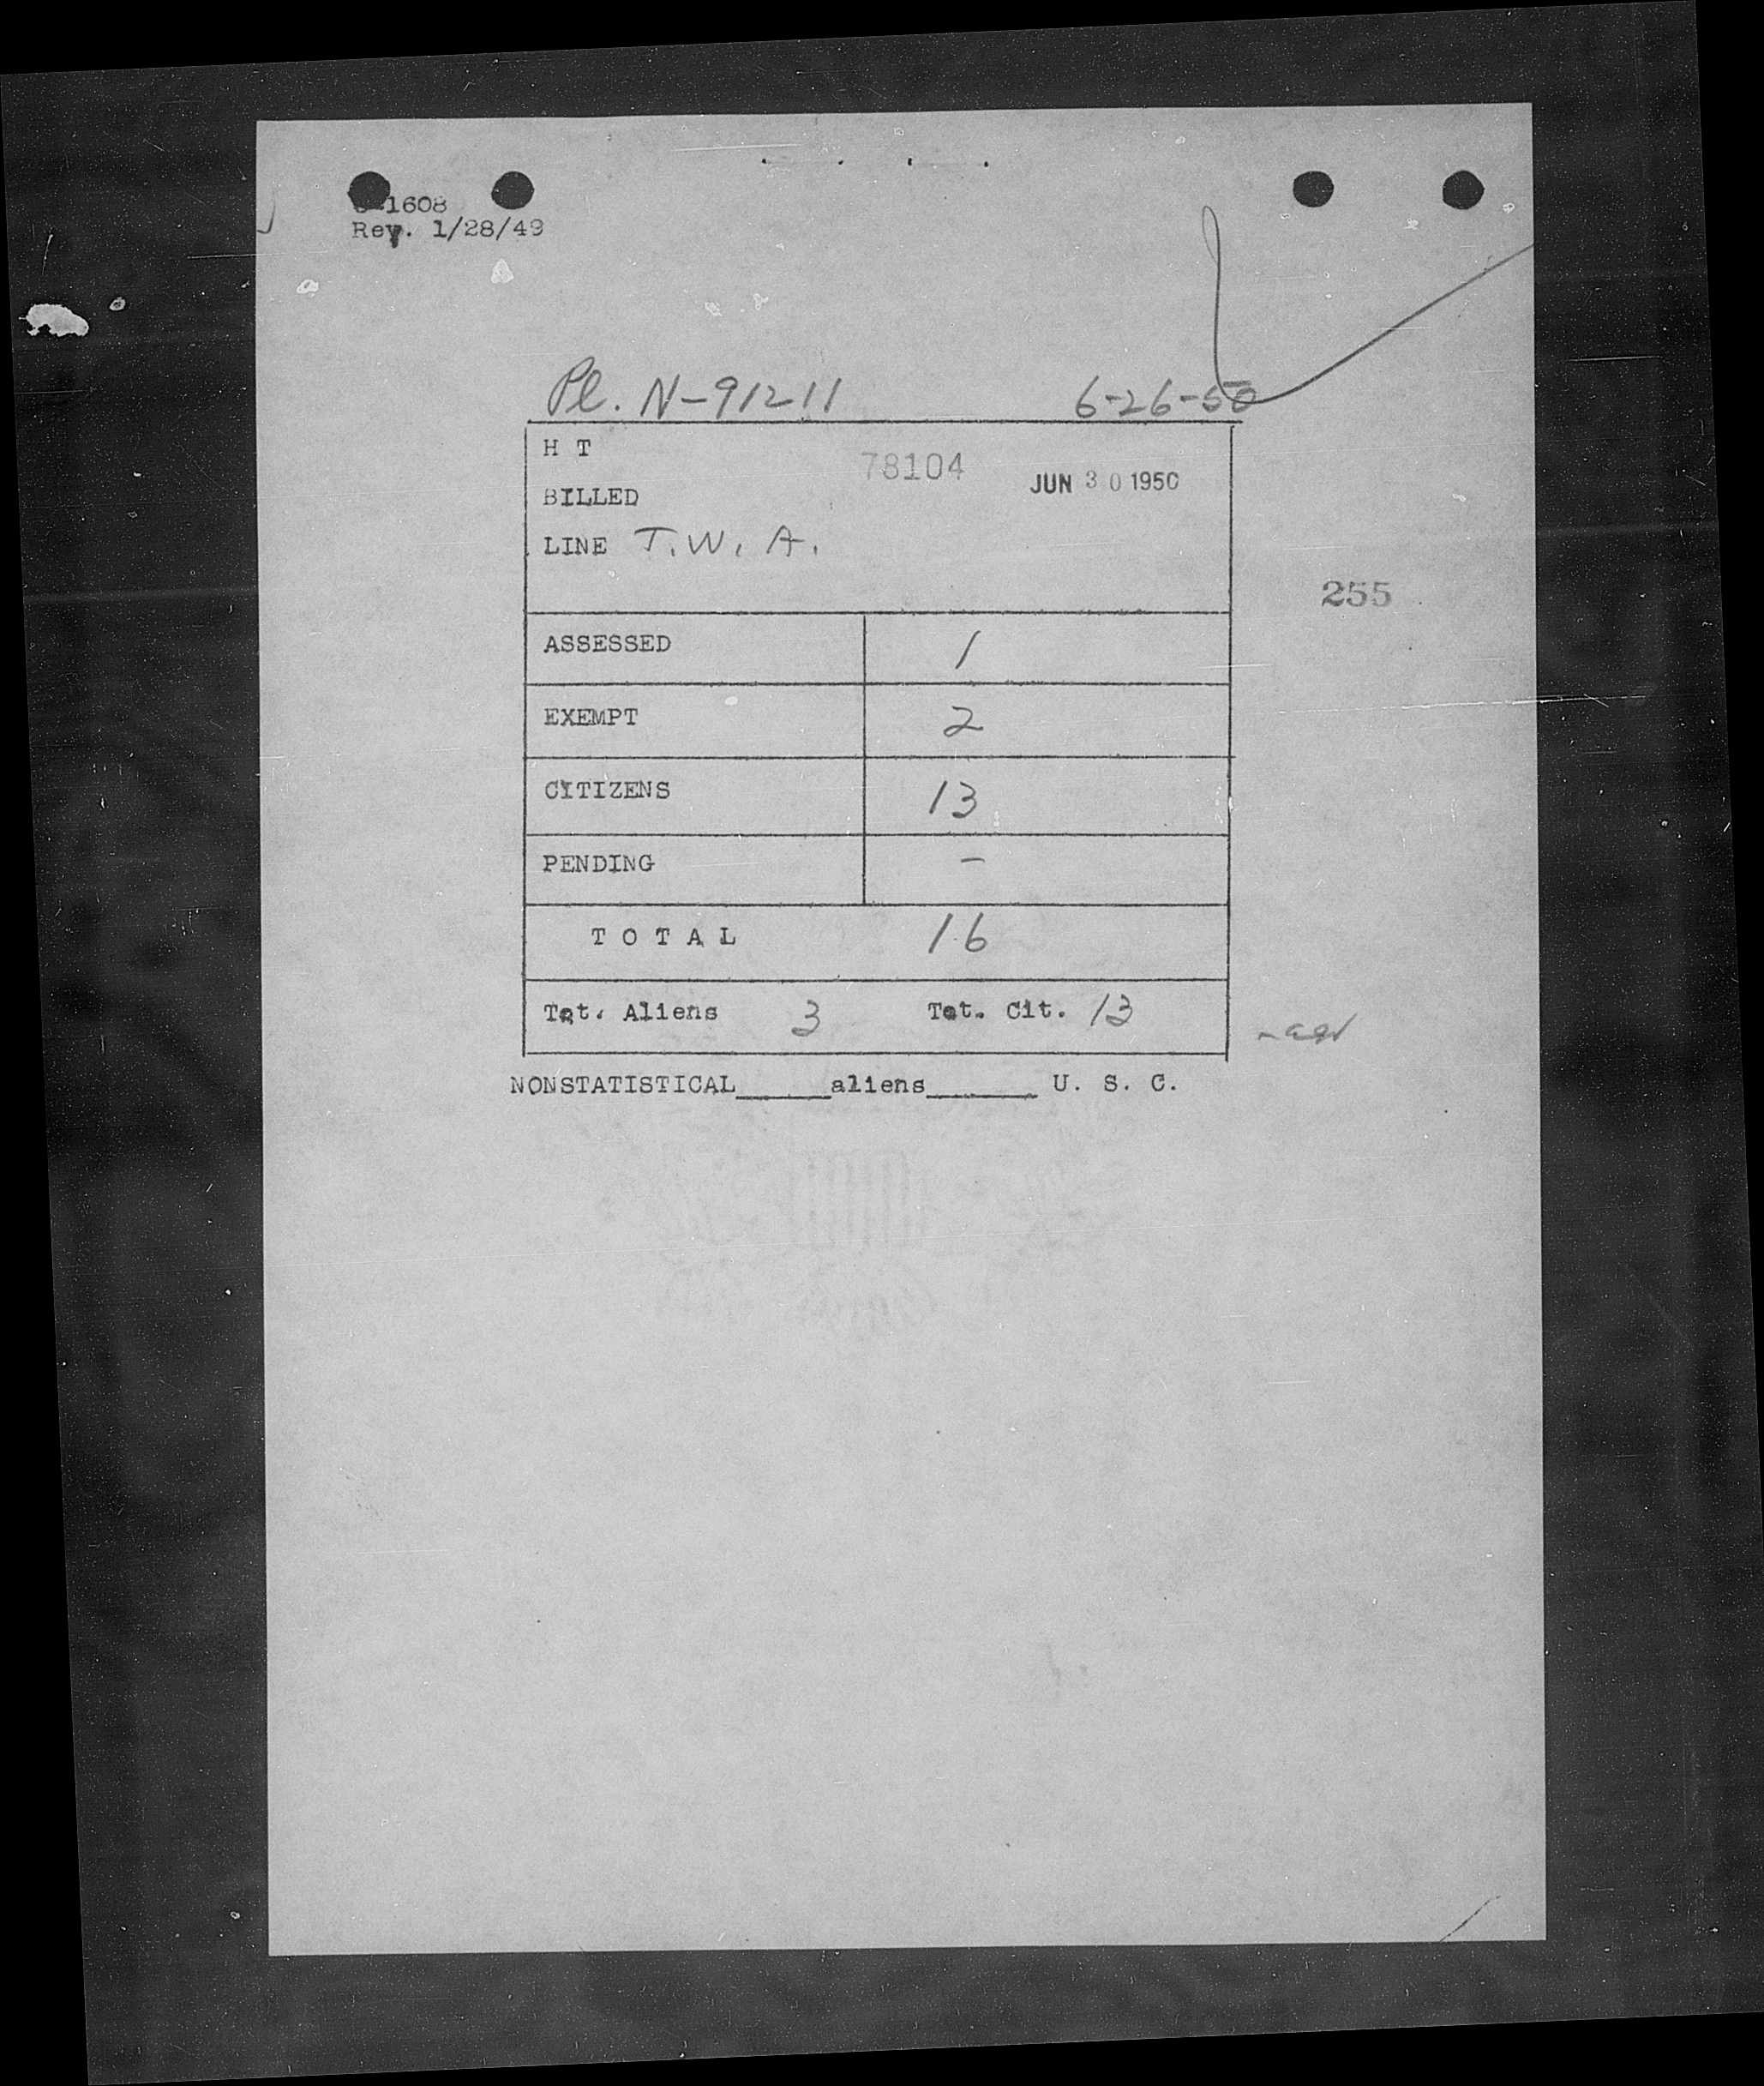 1608
Rev. 1/28/49
Pl. N-91211 6-26-50
H T
78104 JUN 30 1950
BILLED
LINE T. W. A.
255
ASSESSED 1
EXEMPT 2
CITIZENS 13
PENDING -
T O T A L 16
Tot. Aliens 3 Tot. Cit. 13
NONSTATISTICAL_____aliens______ U. S. C.